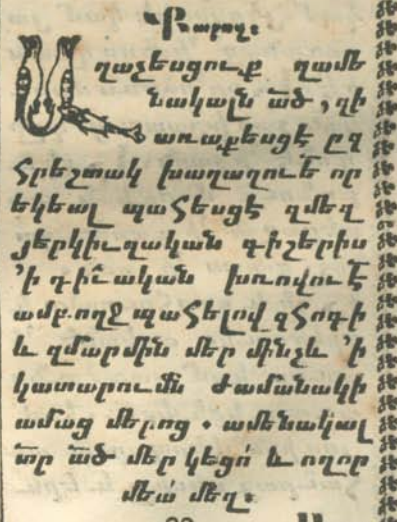 Քարոզ։
Աղաչեսցուք զամե
նակալն ա՟ծ, զի
առաքեսցէ ըզ
հրեշտակ խաղաղու՟ե որ
եկեալ պահեսցէ զմեզ
յերկիւղական գիշերիս
՚ի դի՟ւական խռովու՟է
ամբողջ պահելով զհոգի
և զմարմին մեր մինչև ՚ի
կատարու՟մն ժամանակի
ամաց մերոց . ամենակալ
տ՟ր ա՟ծ մեր կեցո՛ և ողոր
մեա մեզ։